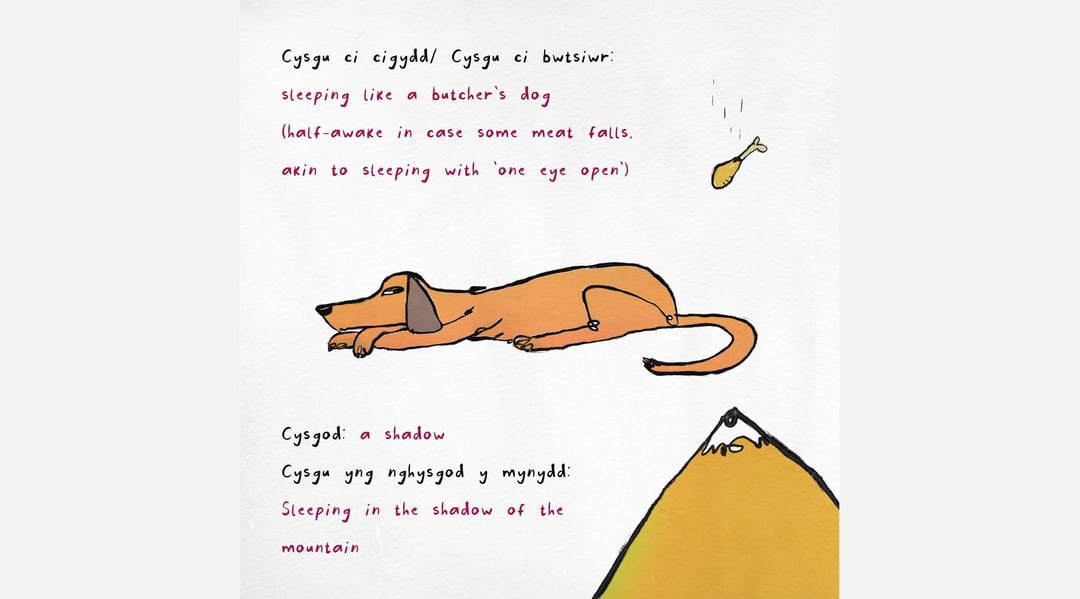 Cysgu ci cigydd/ Cysgu ci bwtsiwr:
sleeping like a butcher's dog
(half-awake in case some meat falls,
akin to sleeping with 'one eye open')
Cysgod: a shadow
Cysgu yng nghysgod y mynydd:
Sleeping in the shadow of the
mountain